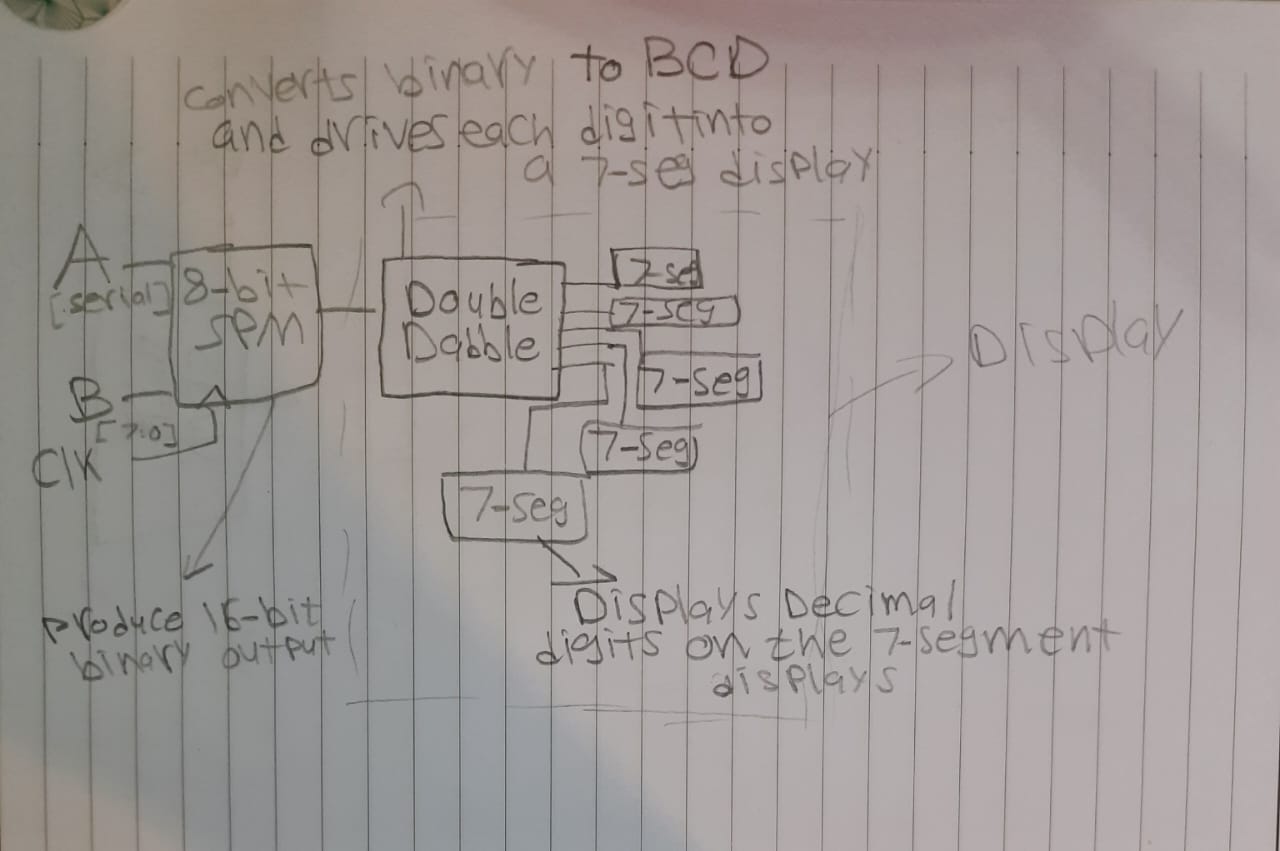 converts binary to BCD
and drives each digit into
a 7-seg display
A
[serial]
8-bit
SPM
B
[7:0]
Clk
Double
Dabble
7-seg
7-seg
7-seg
7-seg
7-seg
Display
produce 16-bit
binary output
Displays Decimal
digits on the 7-segment
displays